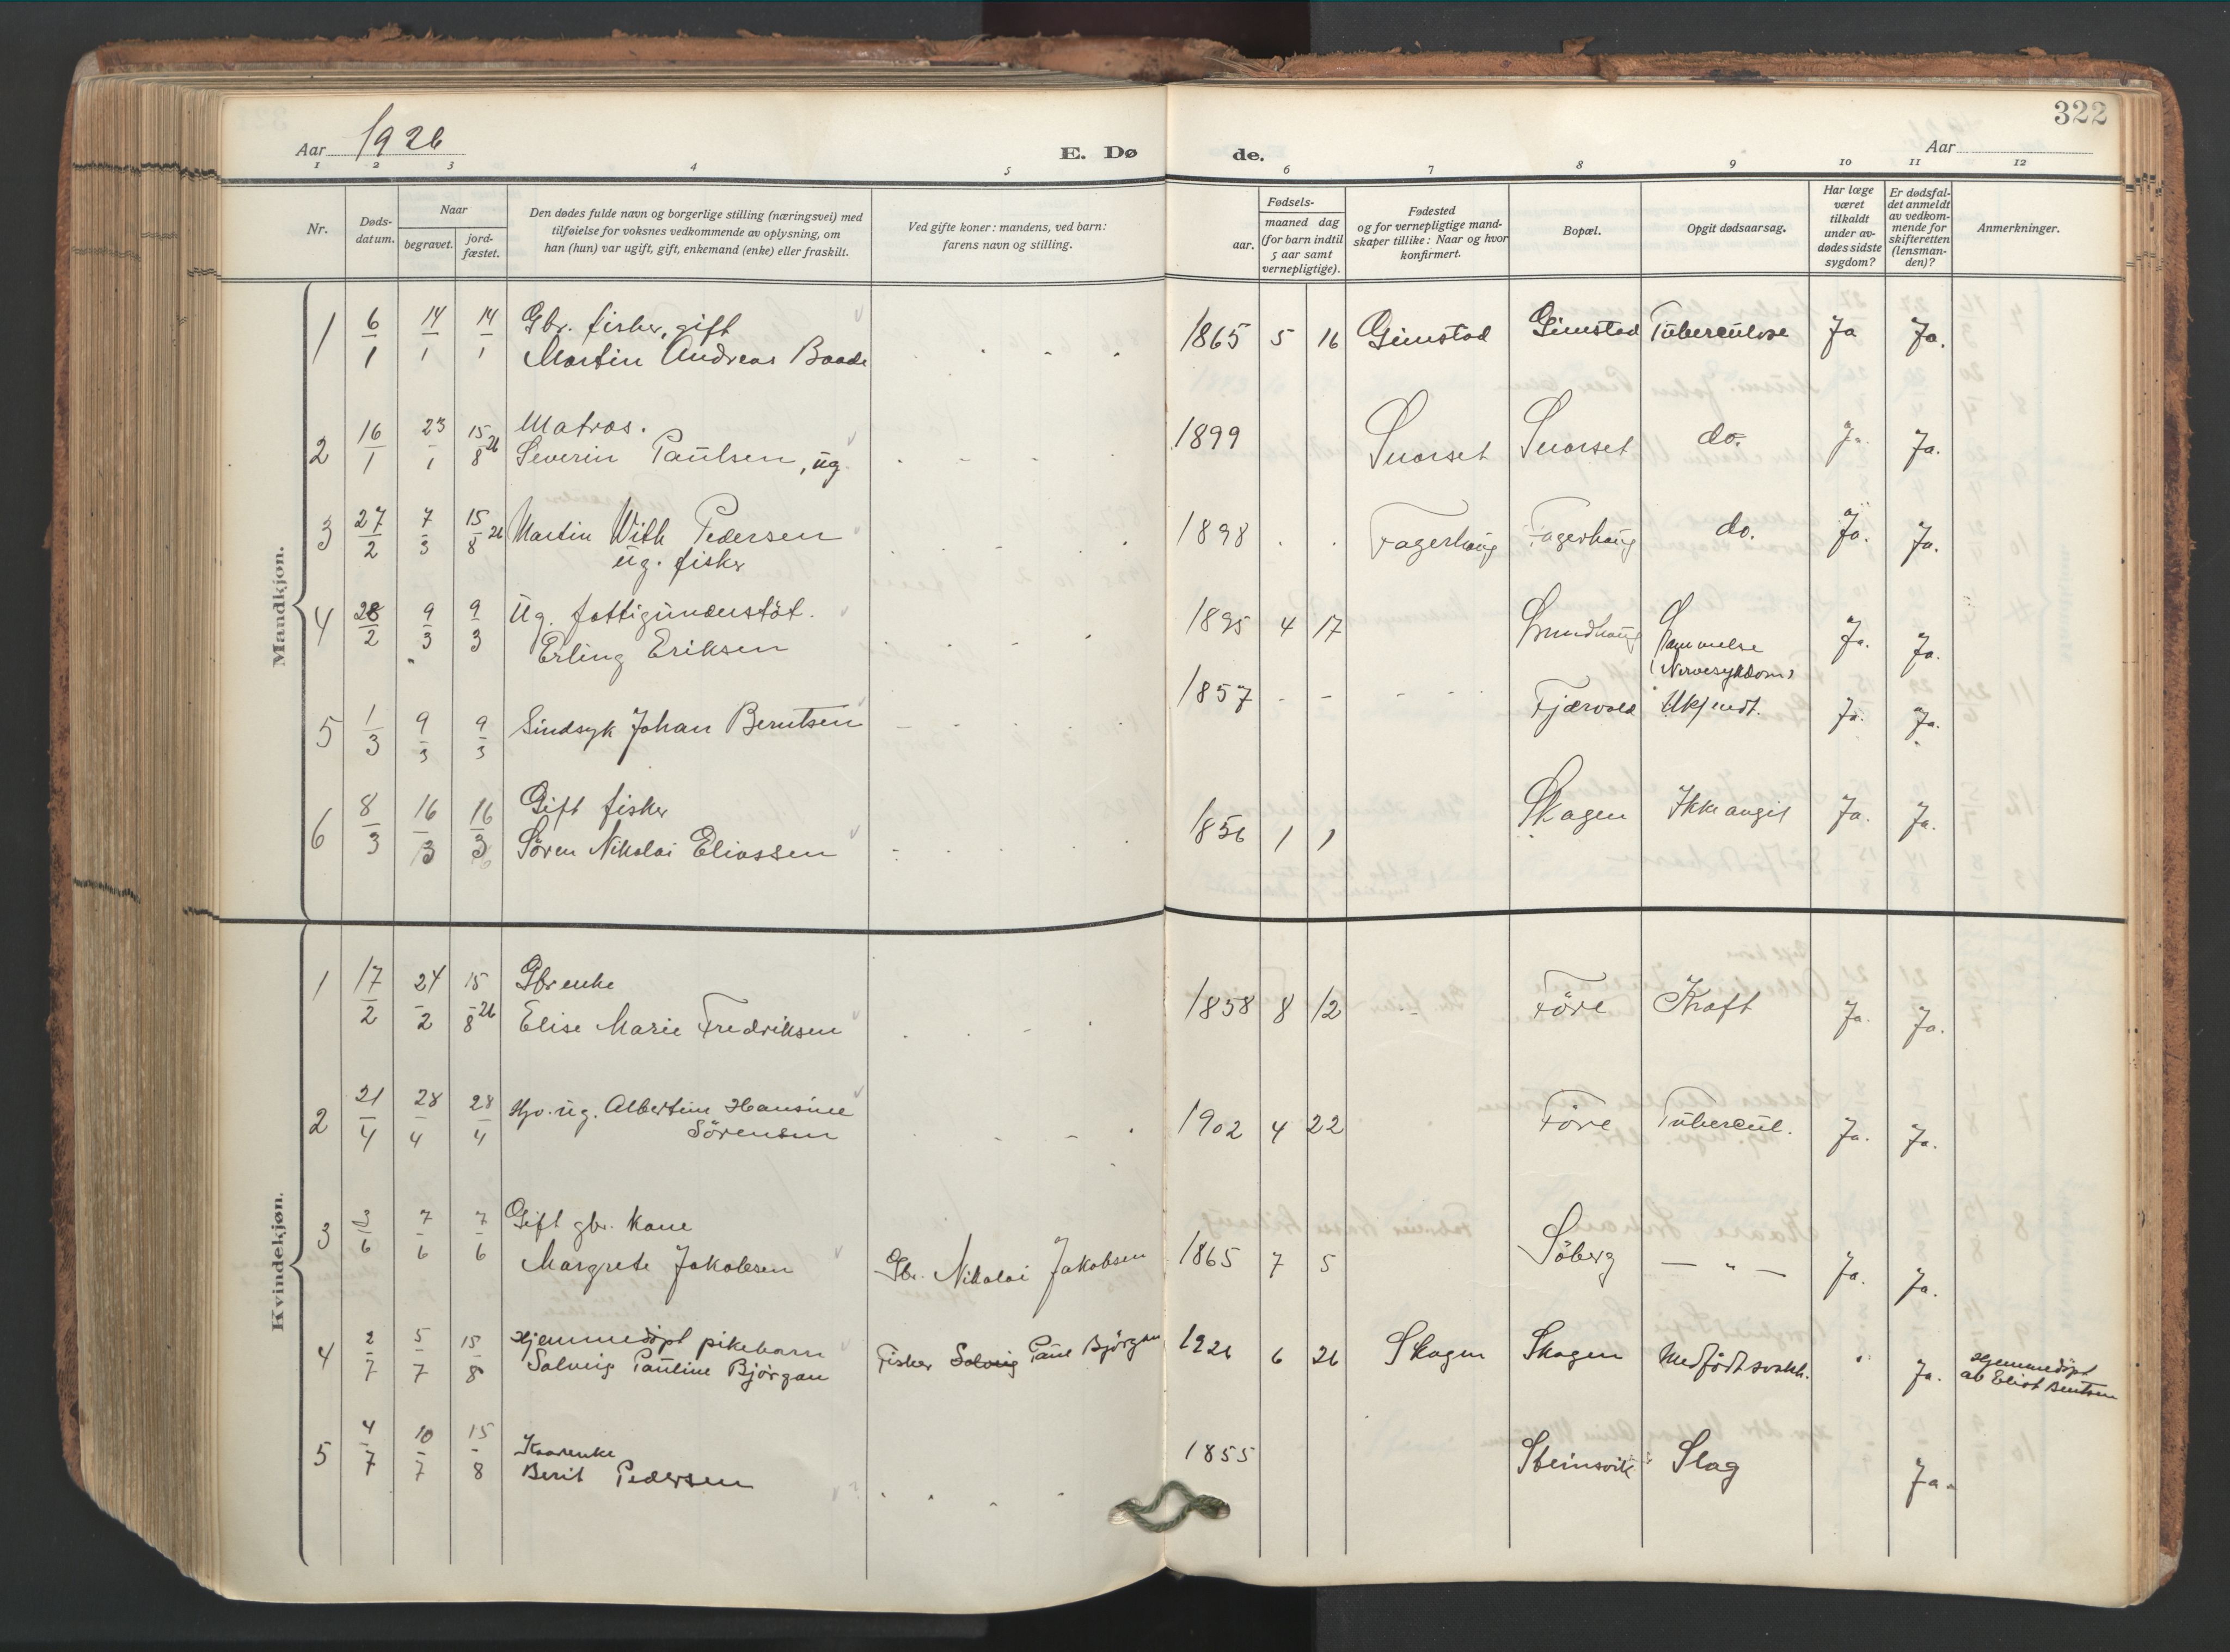 Aar 1926
E. Dø
de.
Aar
322
1 2 3 4 5 6 7 8 9 10 11 12
Nr.
Døds-
datum.
Naar
begravet.
jord-
fæstet.
Den dødes fulde navn og borgerlige stilling (næringsvei) med
tilføielse for voksnes vedkommende av oplysning, om
han (hun) var ugift, gift, enkemand (enke) eller fraskilt.
Ved gifte koner: mandens, ved barn:
farens navn og stilling.
Fødsels-
aar.
maaned dag
(for barn indtil
5 aar samt
vernepligtige).
Fødested
og for vernepligtige mand-
skaper tillike: Naar og hvor
konfirmert.
Bopæl.
Opgit dødsaarsag.
Har læge
været
tilkaldt
under av-
dødes sidste
sygdom?
Er dødsfal-
det anmeldt
av vedkom-
mende for
skifteretten
(lensman-
den)?
Anmerkninger.
Mandkjøn.
1 6/1 14/1 14/1 Gbr. fisker, gift
Martin Andreas Baade 1865 5 16 Gimstad Gimstad Tuberculose Ja Ja.
2 16/1 23/1 15/8 26 Matros.
Severin Paulsen, ug. 1899 Snorset Snorset do. Ja. Ja.
3 27/2 7/3 15/8 26 Martin With Pedersen
ug. fisker 1898 Fagerhaug Fagerhaug do. Ja. Ja.
4 28/2 9/3 9/3 Ug. fattigunderstöt.
Erling Eriksen 1895 4 17 Ja. Ja.
(Nervesykdom)
5 1/3 9/3 9/3 Sindsyk Johan Berntsen 1857 - - Fjærvold Ukjendt. Ja. Ja.
6 8/3 16/3 16/3 Gift fisker
Sören Nikolai Eliassen 1856 1 1 Skagen Ikke angit Ja. Ja.
Kvindekjøn.
1 17/2 24/2 15/8 26 Gbr enke
Elise Marie Fredriksen 1858 8 12 Före Kræft Ja. Ja.
2 21/4 28/4 28/4 Hjv. ug. Albertine Hansine
Sörensen 1902 4 22 Före Tubercul. Ja. Ja.
3 3/6 7/6 7/6 Gift gbr. kone
Margrete Jakobsen Gbr. Nikolai Jakobsen 1865 7 5 Söberg — " — Ja. Ja.
4 2/7 5/7 15/8 Hjemmedöpt pikebarn
Solveig Pauline Björgan Fisker Solveig Paul Björgan 1926 6 26 Skagen Skagen Medfödt svakh. " Ja. Hjemmedöpt
av Elist Bentsen
5 4/7 10/7 15/8 Kaarenke
Berit Pedersen 1855 Steinsvik Slag Ja.